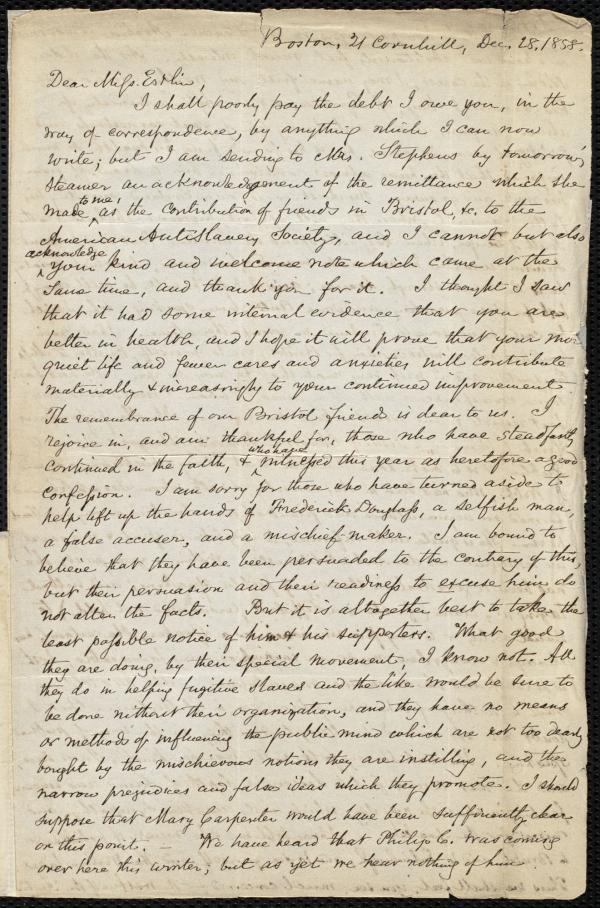 Boston, 21 Cornhill, Dec. 28, 1858.
Dear Miss Estlin,
I shall poorly pay the debt I owe you, in the
way of correspondence, by anything which I can now
write; but I am sending to Mrs. Stephens by tomorrow's
steamer an acknowledgement of the remittance which she
made to me, as the contribution of friends in Bristol, &c, to the
American Antislavery Society, and I cannot but also
acknowledge your kind and welcome note which came at the
same time, and thank you for it. I thought I saw
that it had some internal evidence that you are
better in health, and I hope it will prove that your more
quiet life and fewer cares and anxieties will contribute
materially & increasingly to your continued improvement.
The remembrance of our Bristol friends is dear to us. I
rejoice in, and am thankful for, those who have steadfastly
continued in the faith, & who have witnessed this year as heretofore a good
confession. I am sorry for those who have turned aside to
help lift up the hands of Frederick Douglass, a selfish man,
a false accuser, and a mischief-maker. I am bound to
believe that they have been persuaded to the contrary of this,
but their persuasion and their readiness to excuse him do
not alter the facts. But it is altogether best to take the
least possible notice of him & his supporters. What good
they are doing, by their special movement, I know not. All
they do in helping fugitive slaves and the like would be sure to
be done without their organization, and they have no means
or method of influencing the public mind which are not too dearly
bought by the mischievous notions they are instilling, and the
narrow prejudices and false ideas which they promote. I should
suppose that Mary Carpenter would have been sufficiently clear
on this point. — We have heard that Philip C. was coming
over here this winter; but as yet we hear nothing of him.